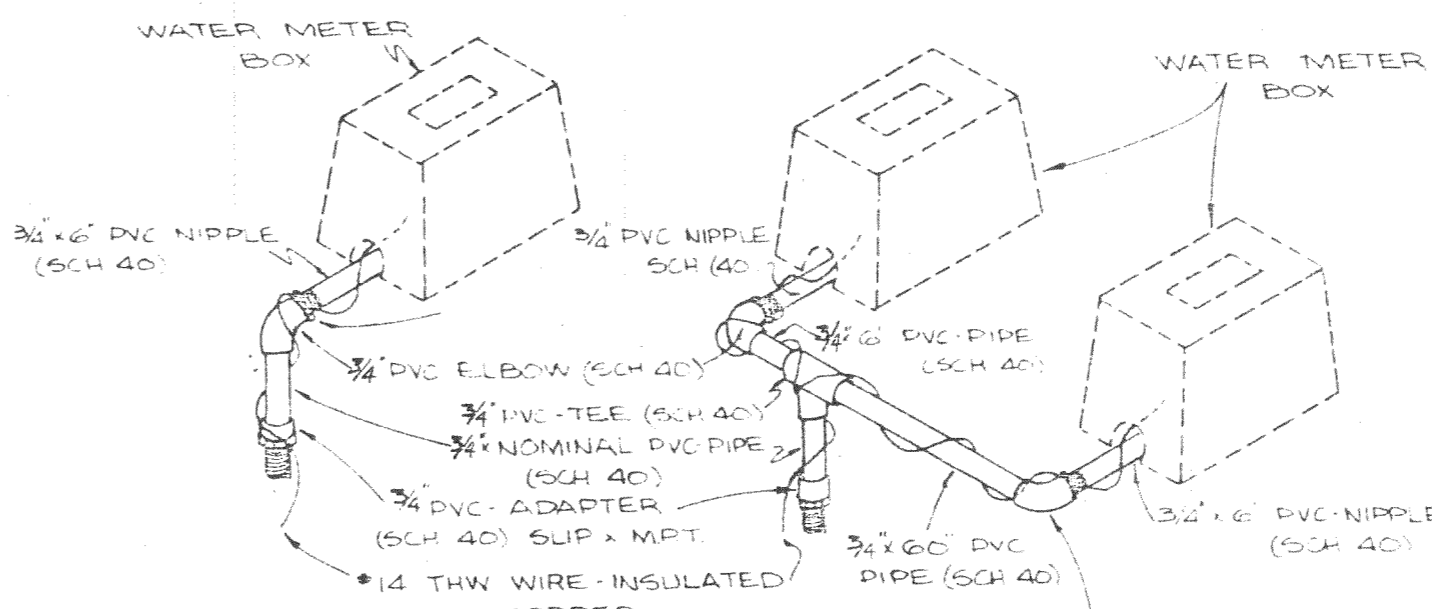 WATER METER
BOX
WATER METER
BOX
3/4" x 6" PVC NIPPLE
(SCH 40)
3/4" PVC NIPPLE
SCH (40
3/4" 6' PVC-PIPE
(SCH 40)
3/4" PVC ELBOW (SCH 40)
3/4" PVC-TEE (SCH 40)
3/4" NOMINAL PVC-PIPE
(SCH 40)
3/4" PVC-ADAPTER
(SCH 40) SLIP x M.P.T.
3/4" x 60" PVC
PIPE (SCH 40)
3/4" x 6" PVC-NIPPLE
(SCH 40)
#14 THW WIRE-INSULATED